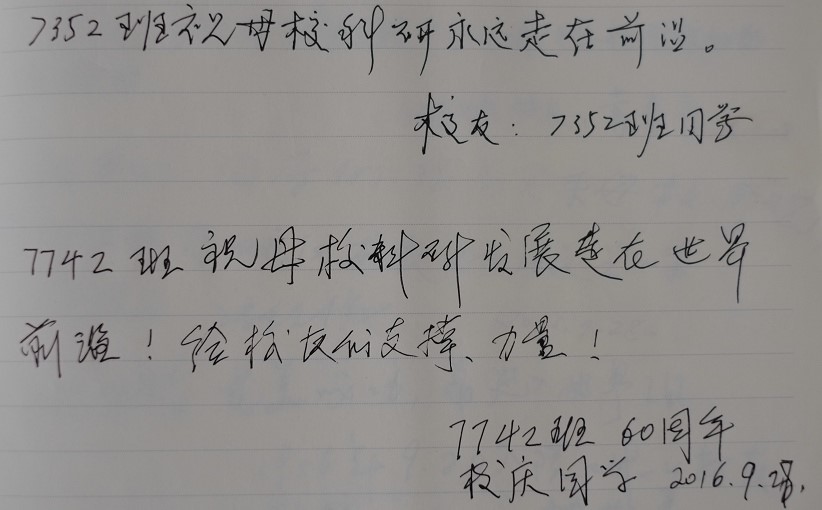 7352班祝母校科研永远走在前沿。
校友：7352班同学
7742班祝母校科研发展走在世界
前沿！给校友们支撑、力量！
7742班 60周年
校庆同学 2016.9.28.